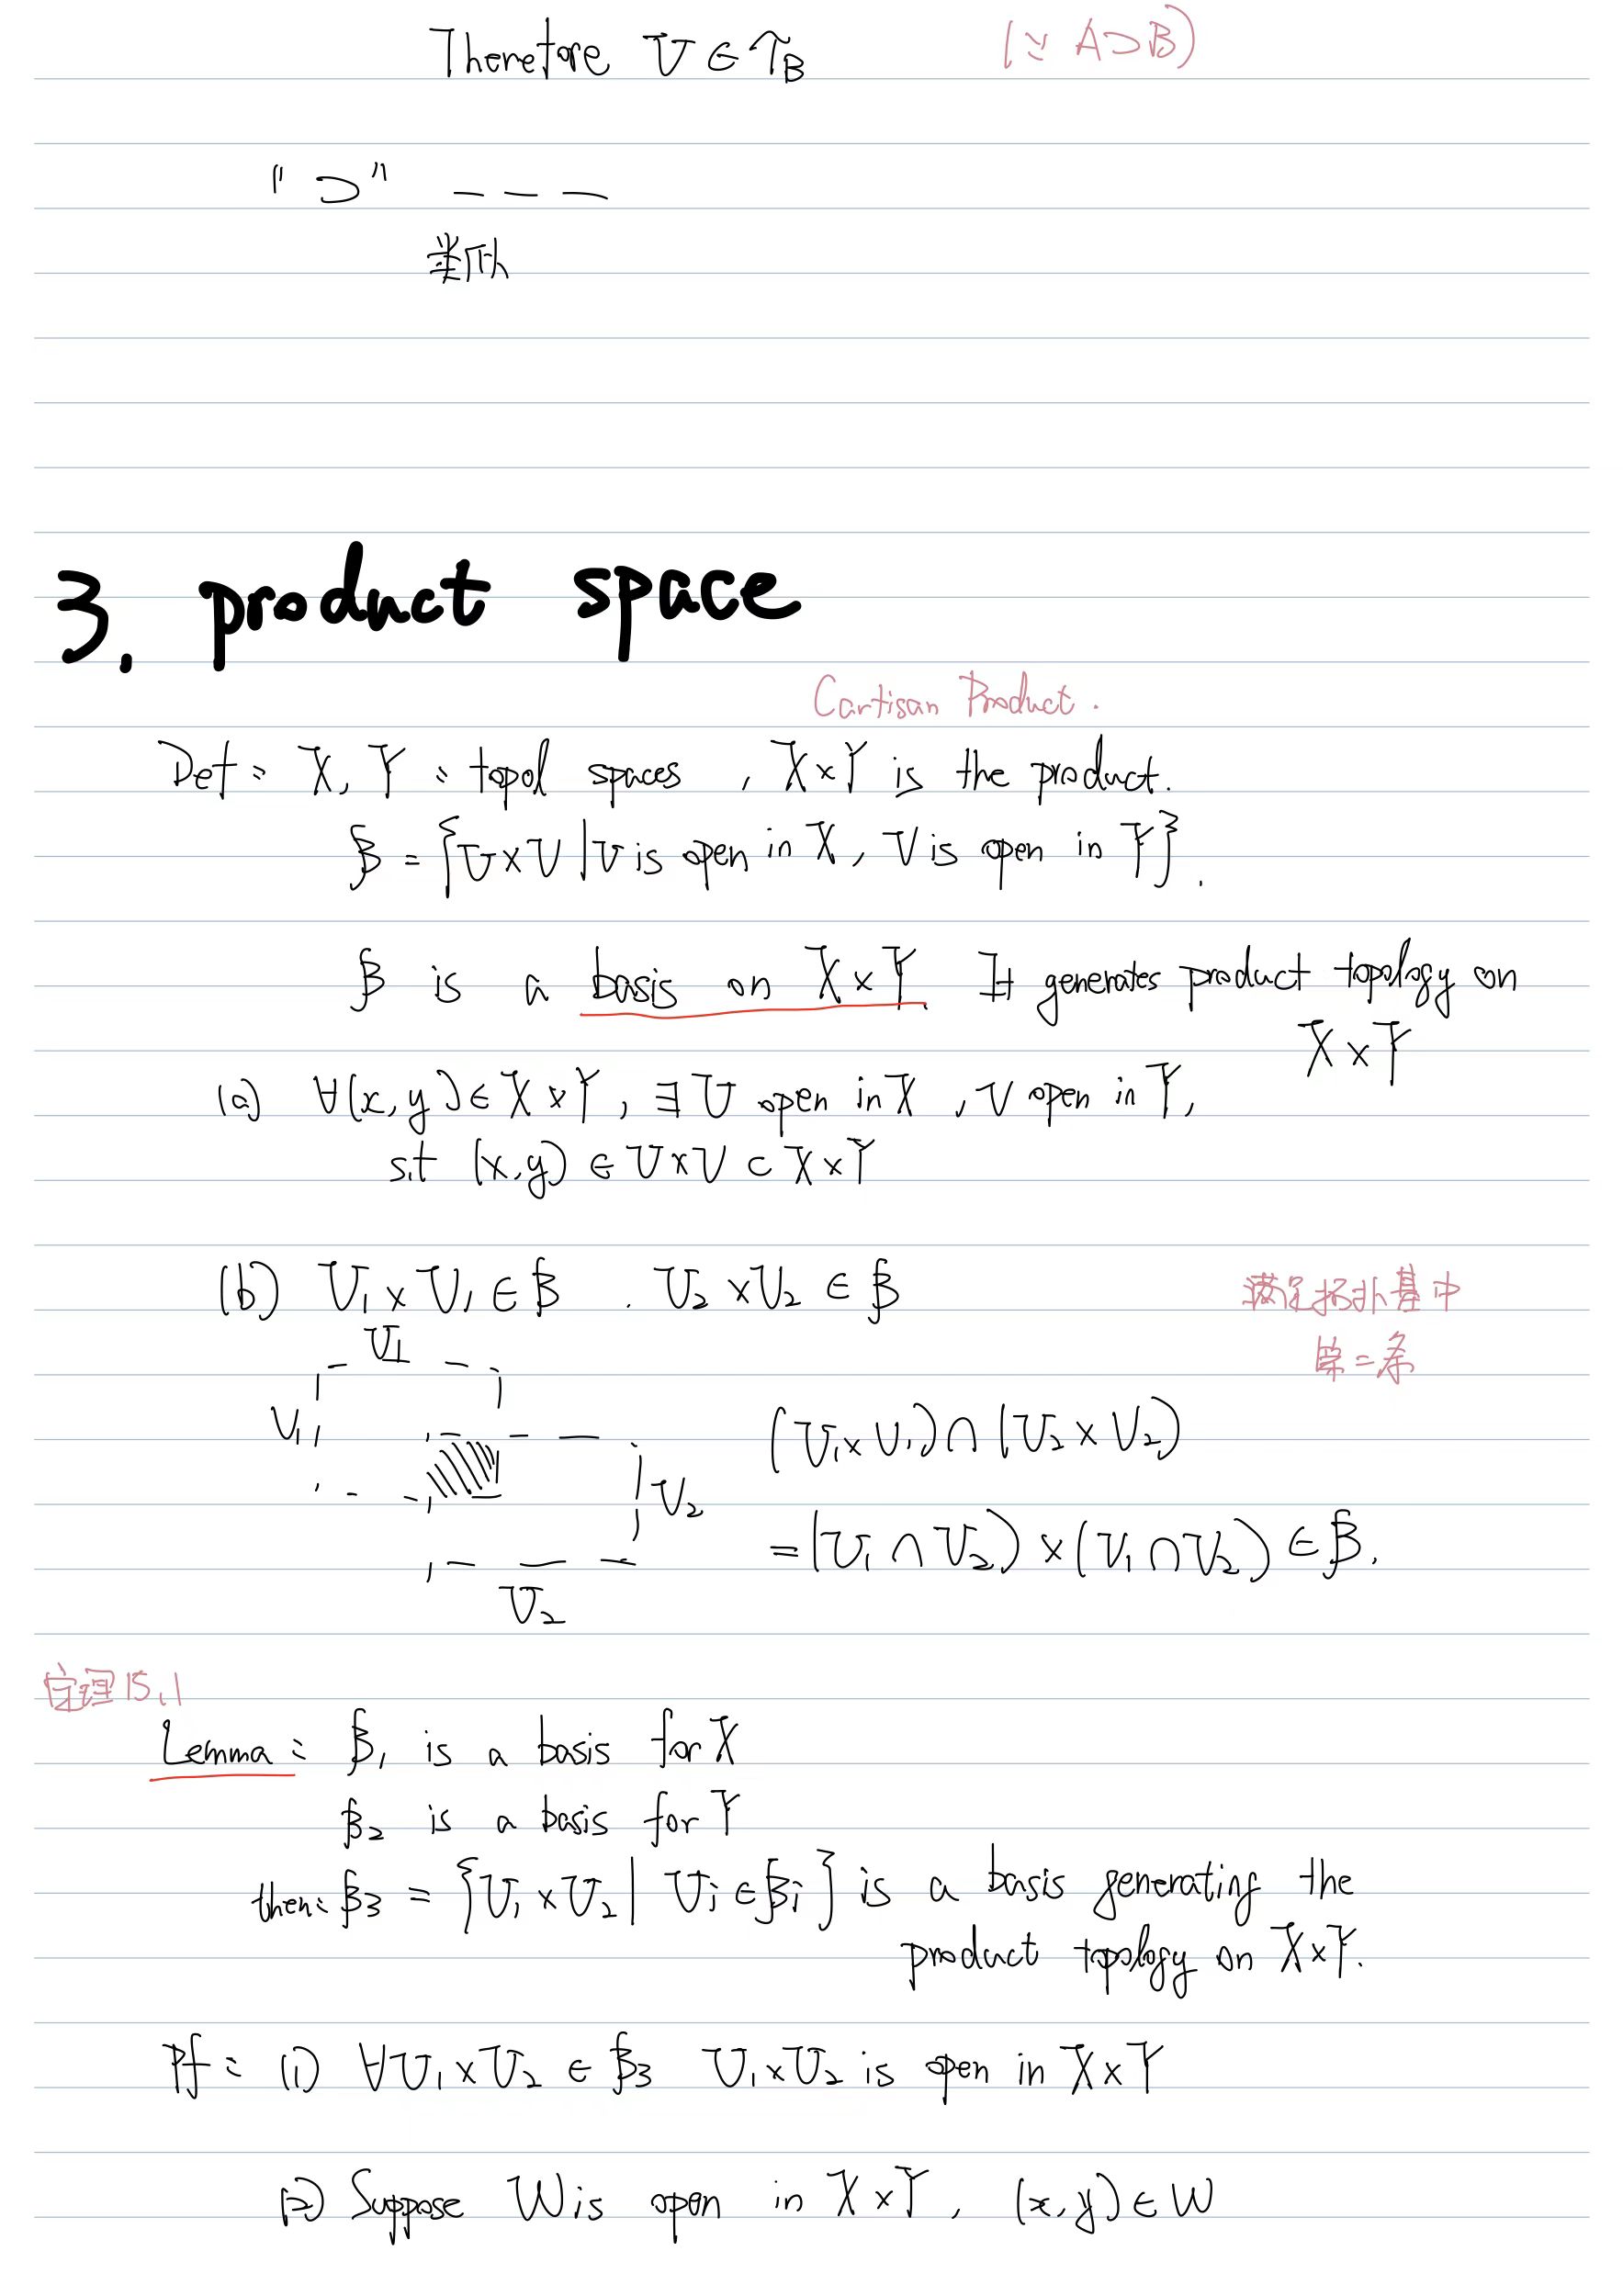 Therefore U ∈ 𝒯_B (∵ A⊃B)
"⊃" ———
类似
3. product space
Cartisan Product.
Def: X, Y : topol spaces, X×Y is the product.
ℬ = {U×V | U is open in X, V is open in Y}.
ℬ is a basis on X×Y It generates product topology on
X×Y
(a) ∀(x,y)∈X×Y, ∃U open in X, V open in Y,
s.t (x,y) ∈ U×V ⊂ X×Y
(b) U₁×V₁∈ℬ . U₂×V₂ ∈ ℬ
满足拓扑基中
第二条
U₁
V₁
(U₁×V₁)∩(U₂×V₂)
V₂
=(U₁∩U₂)×(V₁∩V₂)∈ℬ.
U₂
定理15.1
Lemma: ℬ₁ is a basis for X
ℬ₂ is a basis for Y
then: ℬ₃ = {U₁×U₂ | Uᵢ∈ℬᵢ} is a basis generating the
product topology on X×Y.
Pf: (1) ∀U₁×U₂ ∈ ℬ₃ U₁×U₂ is open in X×Y
(2) Suppose W is open in X×Y, (x,y)∈W